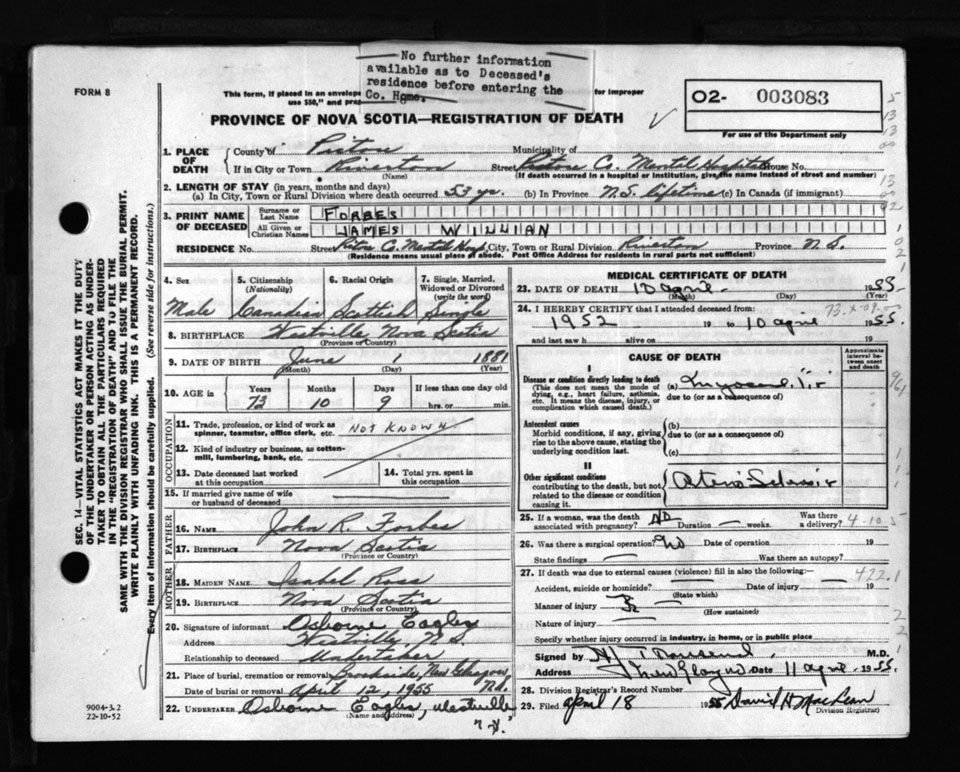 No further information
available as to Deceased's
residence before entering the
Co. Home.
FORM 8
This form, if placed in an envelope
for improper
use $50," and
02- 003083
For use of the Department only
PROVINCE OF NOVA SCOTIA—REGISTRATION OF DEATH
1. PLACE OF DEATH
County of Pictou
Municipality of
If in City or Town Riverton
(Name)
Street Pictou Co. Mental Hospital House No.
(If death occurred in a hospital or institution, give the name instead of street and number)
2. LENGTH OF STAY (in years, months and days)
(a) In City, Town or Rural Division where death occurred 53 yr. (b) In Province N.S. lifetime (c) In Canada (if immigrant)
3. PRINT NAME OF DECEASED
Surname or Last Name FORBES
All Given or Christian Names JAMES WILLIAN
RESIDENCE No. Street Pictou Co. Mental Hosp City, Town or Rural Division Riverton Province N S.
(Residence means usual place of abode. Post Office Address for residents in rural parts not sufficient)
4. Sex
Male
5. Citizenship
(Nationality)
Canadian
6. Racial Origin
Scottish
7. Single, Married, Widowed or Divorced
(write the word)
Single
8. BIRTHPLACE Westville Nova Scotia
(Province or Country)
9. DATE OF BIRTH June 1 1881
(Month) (Day) (Year)
10. AGE in
Years Months Days If less than one day old
73 10 9 hrs. or min.
OCCUPATION
11. Trade, profession, or kind of work as spinner, teamster, office clerk, etc. NOT KNOWN
12. Kind of industry or business, as cotton-mill, lumbering, bank, etc.
13. Date deceased last worked at this occupation
14. Total yrs. spent in this occupation
15. If married give name of wife or husband of deceased
FATHER
16. NAME John R. Forbes
17. BIRTHPLACE Nova Scotia
(Province or Country)
MOTHER
18. MAIDEN NAME Isabel Ross
19. BIRTHPLACE Nova Scotia
(Province or Country)
20. Signature of informant Osborne Eagles
Address Westville, N S.
Relationship to deceased Undertaker
21. Place of burial, cremation or removal Brookside, New Glasgow
Date of burial or removal April 12, 1955
22. UNDERTAKER Osborne Eagles, Westville
(Name and address)
MEDICAL CERTIFICATE OF DEATH
23. DATE OF DEATH 10 April 1955
(Month) (Day) (Year)
24. I HEREBY CERTIFY that I attended deceased from:
1952 19 to 10 April 1955.
and last saw h alive on 19
CAUSE OF DEATH
Approximate interval between onset and death
I
Disease or condition directly leading to death
(This does not mean the mode of dying, e.g., heart failure, asthenia, etc. It means the disease, injury, or complication which caused death.)
(a)
due to (or as a consequence of)
Antecedent causes
Morbid conditions, if any, giving rise to the above cause, stating the underlying condition last.
(b)
due to (or as a consequence of)
(c)
II
Other significant conditions
contributing to the death, but not related to the disease or condition causing it.
25. If a woman, was the death associated with pregnancy? Duration — weeks. Was there a delivery?
4-10-5
26. Was there a surgical operation? No Date of operation 19
State findings Was there an autopsy?
27. If death was due to external causes (violence) fill in also the following:—
422.1
Accident, suicide or homicide? Date of injury 19
(State which)
Manner of injury
(How sustained)
Nature of injury
Specify whether injury occurred in industry, in home, or in public place
Signed by M.D.
Address New Glasgow Date 11 April 1955.
28. Division Registrar's Record Number
29. Filed April 18 1955 David H MacLean
(Division Registrar)
9004-3.2
22-10-52
SEC. 14—VITAL STATISTICS ACT MAKES IT THE DUTY
OF THE UNDERTAKER OR PERSON ACTING AS UNDER-
TAKER TO OBTAIN ALL THE PARTICULARS REQUIRED
IN THE "REGISTRATION OF DEATH" AND TO FILE THE
SAME WITH THE DIVISION REGISTRAR WHO SHALL ISSUE THE BURIAL PERMIT.
WRITE PLAINLY WITH UNFADING INK. THIS IS A PERMANENT RECORD.
Every item of Information should be carefully supplied. (See reverse side for instructions.)